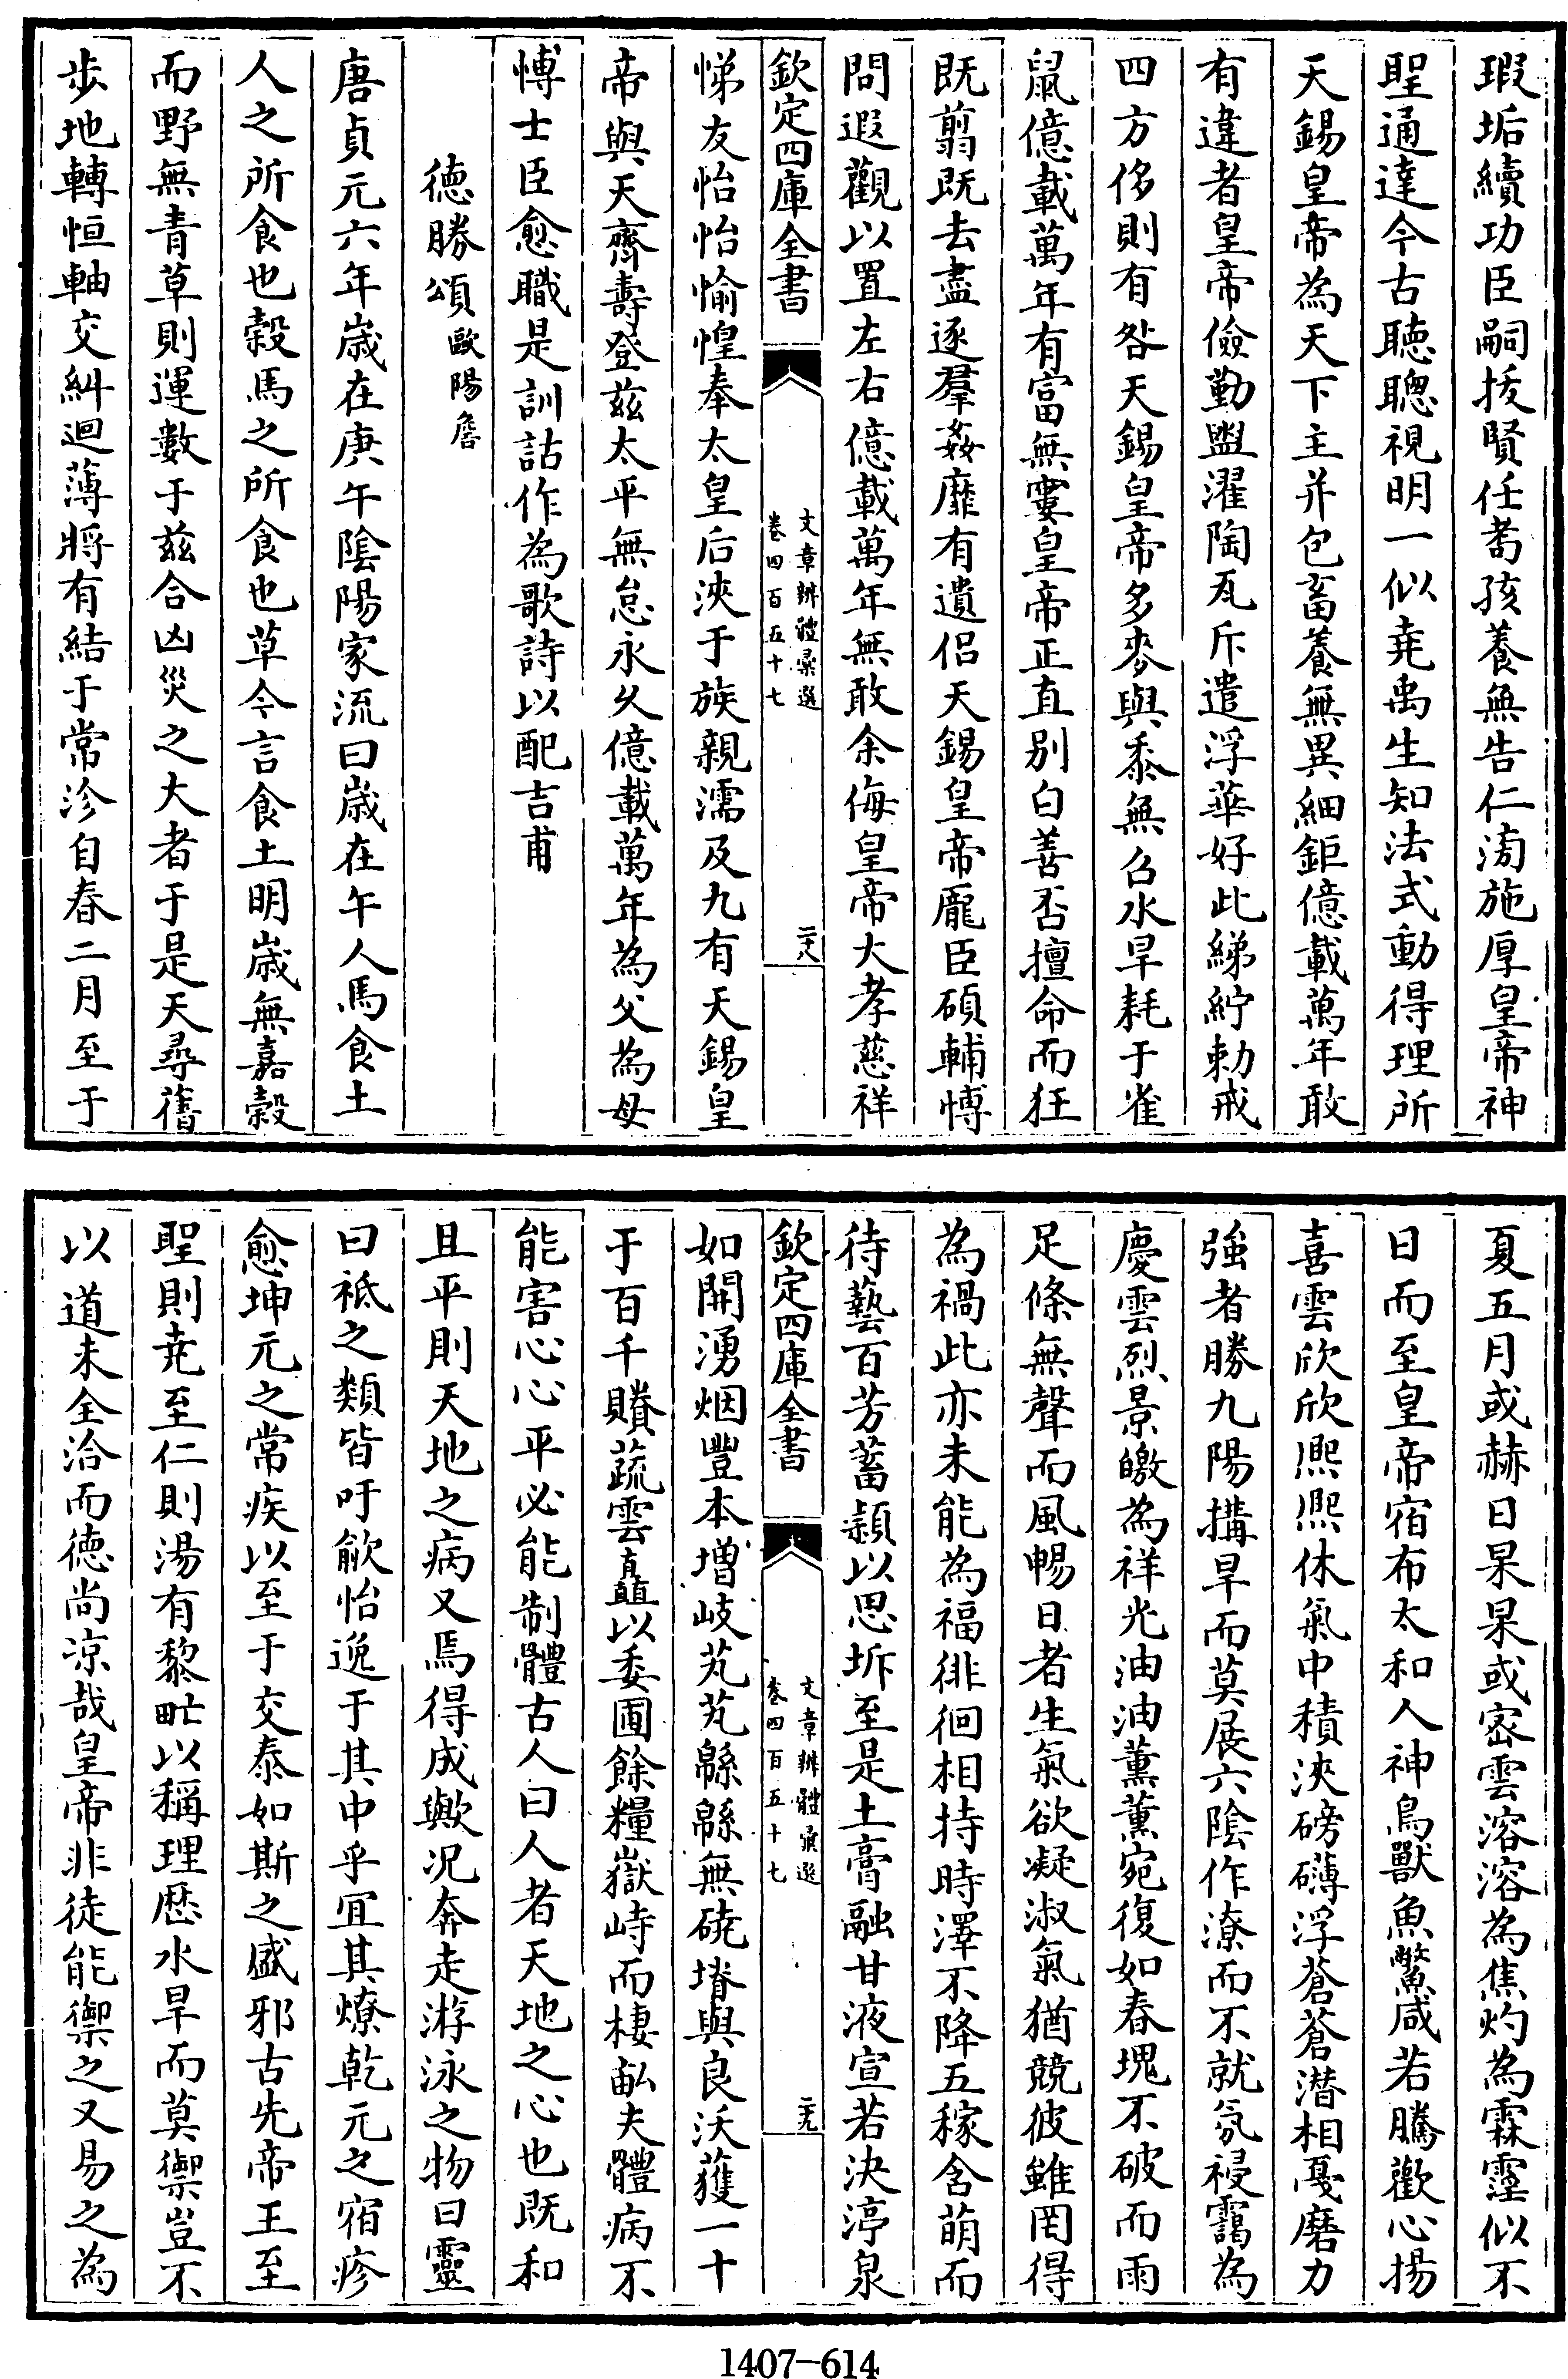 瑕垢續功臣嗣拔賢任耈孩養無告仁滂施厚皇帝神
聖通達今古聽聰視明一似堯禹生知法式動得理所
天錫皇帝為天下主并包畜養無異細鉅億載萬年敢
有違者皇帝儉勤盥濯陶瓦斥遣浮華好此綈紵勅戒
四方侈則有咎天錫皇帝多麥與黍無召水旱耗于雀
鼠億載萬年有富無窶皇帝正直别白善否擅命而狂
既翦既去盡逐羣姦靡有遺侣天錫皇帝厖臣碩輔博
問遐觀以置左右億載萬年無敢余侮皇帝大孝慈祥
欽定四庫全書
文章辨體彙選
卷四百五十七
二十八
悌友怡怡愉惶奉太皇后浹于族親濡及九有天錫皇
帝與天齊壽登兹太平無怠永久億載萬年為父為母
博士臣愈職是訓詁作為歌詩以配吉甫
德勝頌歐陽詹
唐貞元六年歲在庚午陰陽家流曰歲在午人馬食土
人之所食也穀馬之所食也草今言食土明歲無嘉穀
而野無青草則運數于兹合凶災之大者于是天尋舊
步地轉恒軸交糾迴薄將有結于常沴自春二月至于
夏五月或赫日杲杲或密雲溶溶為焦灼為霖霪似不
日而至皇帝宿布太和人神鳥獸魚鱉咸若騰歡心揚
喜雲欣欣熙熙休氣中積浹磅礴浮蒼蒼潛相戞磨力
強者勝九陽搆旱而莫展六陰作潦而不就氛祲靄為
慶雲烈景皦為祥光油油薰薰宛復如春塊不破而雨
足條無聲而風暢日者生氣欲凝淑氣猶競彼雖罔得
為禍此亦未能為福徘徊相持時澤不降五稼含萌而
待藝百芳蓄潁以思坼至是土膏融甘液宣若決渟泉
欽定四庫全書
文章辨體彙選
卷四百五十七
二十九
如開湧烟豐本增岐芃芃緜緜無磽塉與良沃獲一十
于百千賸蔬雲矗以委圃餘糧嶽峙而棲畝夫體病不
能害心心平必能制體古人曰人者天地之心也既和
且平則天地之病又焉得成歟况奔走游泳之物曰靈
曰祗之類皆吁歈怡逸于其中乎宜其燎乾元之宿疹
愈坤元之常疾以至于交泰如斯之盛邪古先帝王至
聖則堯至仁則湯有黎甿以稱理歴水旱而莫禦豈不
以道未全洽而德尚凉哉皇帝非徒能禦之又易之為
1407—614